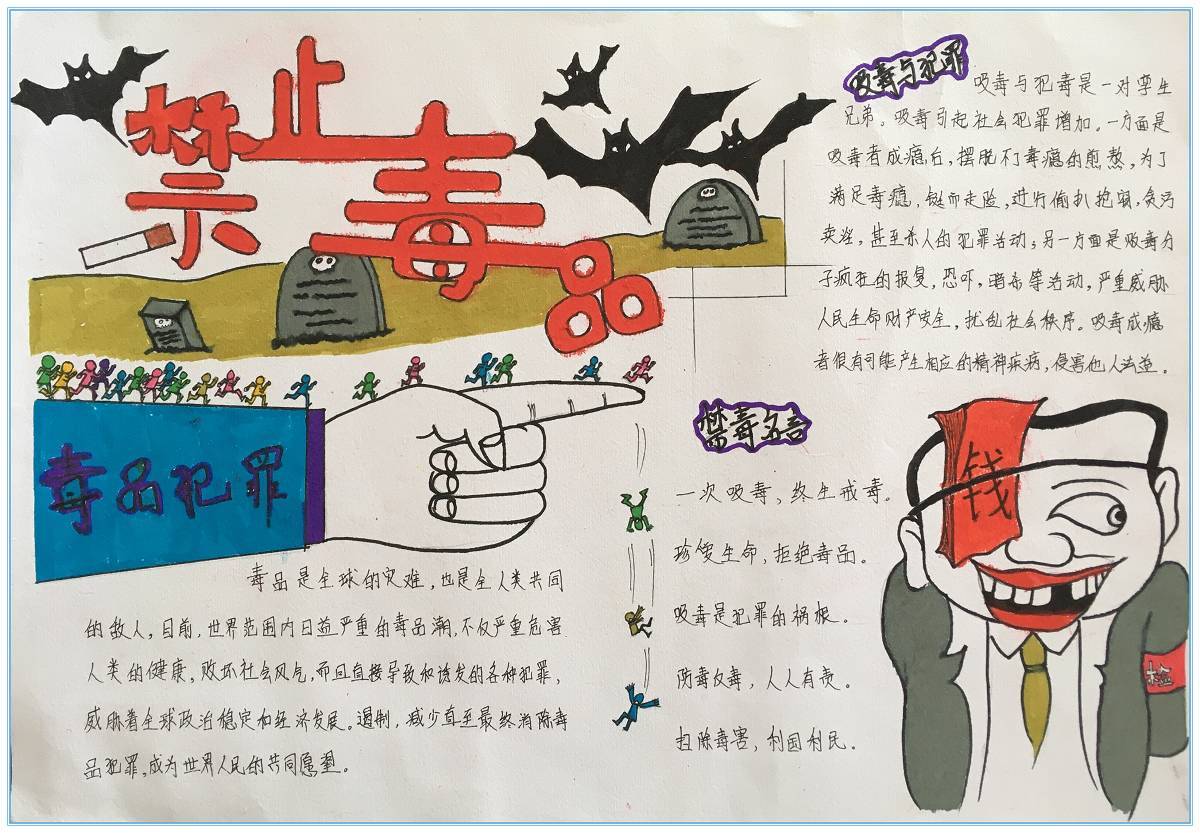 禁止毒品
吸毒与犯罪
吸毒与犯毒是一对孪生
兄弟。吸毒引起社会犯罪增加。一方面是
吸毒者成瘾后，摆脱不了毒瘾的煎熬，为了
满足毒瘾，铤而走险，进行偷扒抢窃，贪污
卖淫，甚至杀人的犯罪活动；另一方面是贩毒分
子疯狂的报复，恐吓，暗杀等活动，严重威胁
人民生命财产安全，扰乱社会秩序。吸毒成瘾
者很有可能产生相应的精神疾病，侵害他人法益。
毒品犯罪
毒品是全球的灾难，也是全人类共同
的敌人，目前，世界范围内日益严重的毒品潮，不仅严重危害
人类的健康，败坏社会风气，而且直接导致和诱发的各种犯罪，
威胁着全球政治稳定和经济发展。遏制，减少直至最终消除毒
品犯罪，成为世界人民的共同愿望。
禁毒名言
一次吸毒，终生戒毒。
珍爱生命，拒绝毒品。
吸毒是犯罪的祸根。
防毒反毒，人人有责。
扫除毒害，利国利民。
钱
检